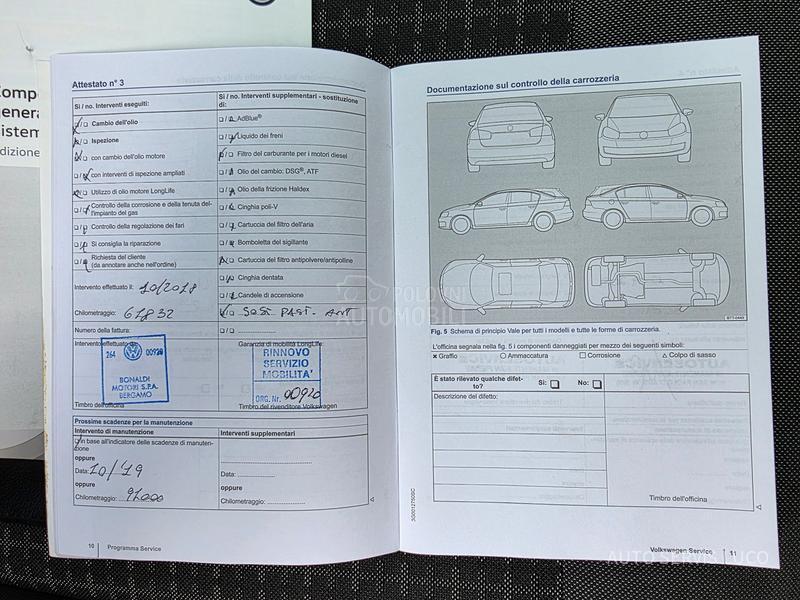 Attestato n° 3
Si / no. Interventi eseguiti:
Cambio dell'olio
Ispezione
con cambio dell'olio motore
con interventi di ispezione ampliati
Utilizzo di olio motore LongLife
Controllo della corrosione e della tenuta dell'impianto del gas
Controllo della regolazione dei fari
Si consiglia la riparazione
Richiesta del cliente
(da annotare anche nell'ordine)
Intervento effettuato il: 10/2018
Chilometraggio: 67832
Numero della fattura:
Intervento effettuato da:
264 00920
BONALDI
MOTORI S.P.A.
BERGAMO
Timbro dell'officina
Si / no. Interventi supplementari - sostituzione
di:
AdBlue®
Liquido dei freni
Filtro del carburante per i motori diesel
Olio del cambio: DSG®, ATF
Olio della frizione Haldex
Cinghia poli-V
Cartuccia del filtro dell'aria
Bomboletta del sigillante
Cartuccia del filtro antipolvere/antipolline
Cinghia dentata
Candele di accensione
SOST PAST. ANT
Garanzia di mobilità LongLife:
RINNOVO
SERVIZIO
MOBILITA'
ORG. Nr. 00920
Timbro del rivenditore Volkswagen
Prossime scadenze per la manutenzione
Intervento di manutenzione
In base all'indicatore delle scadenze di manuten-
zione
oppure
Data: 10/'19
oppure
Chilometraggio: 91000
Interventi supplementari
Data:
oppure
Chilometraggio:
10 Programma Service
Documentazione sul controllo della carrozzeria
Fig. 5 Schema di principio Vale per tutti i modelli e tutte le forme di carrozzeria.
L'officina segnala nella fig. 5 i componenti danneggiati per mezzo dei seguenti simboli:
Graffio Ammaccatura Corrosione Colpo di sasso
È stato rilevato qualche difet-
to?
Si: No:
Descrizione del difetto:
Timbro dell'officina
Volkswagen Service 11
POLOVNI
AUTOMOBILI
AUTO SERVIS VUCO